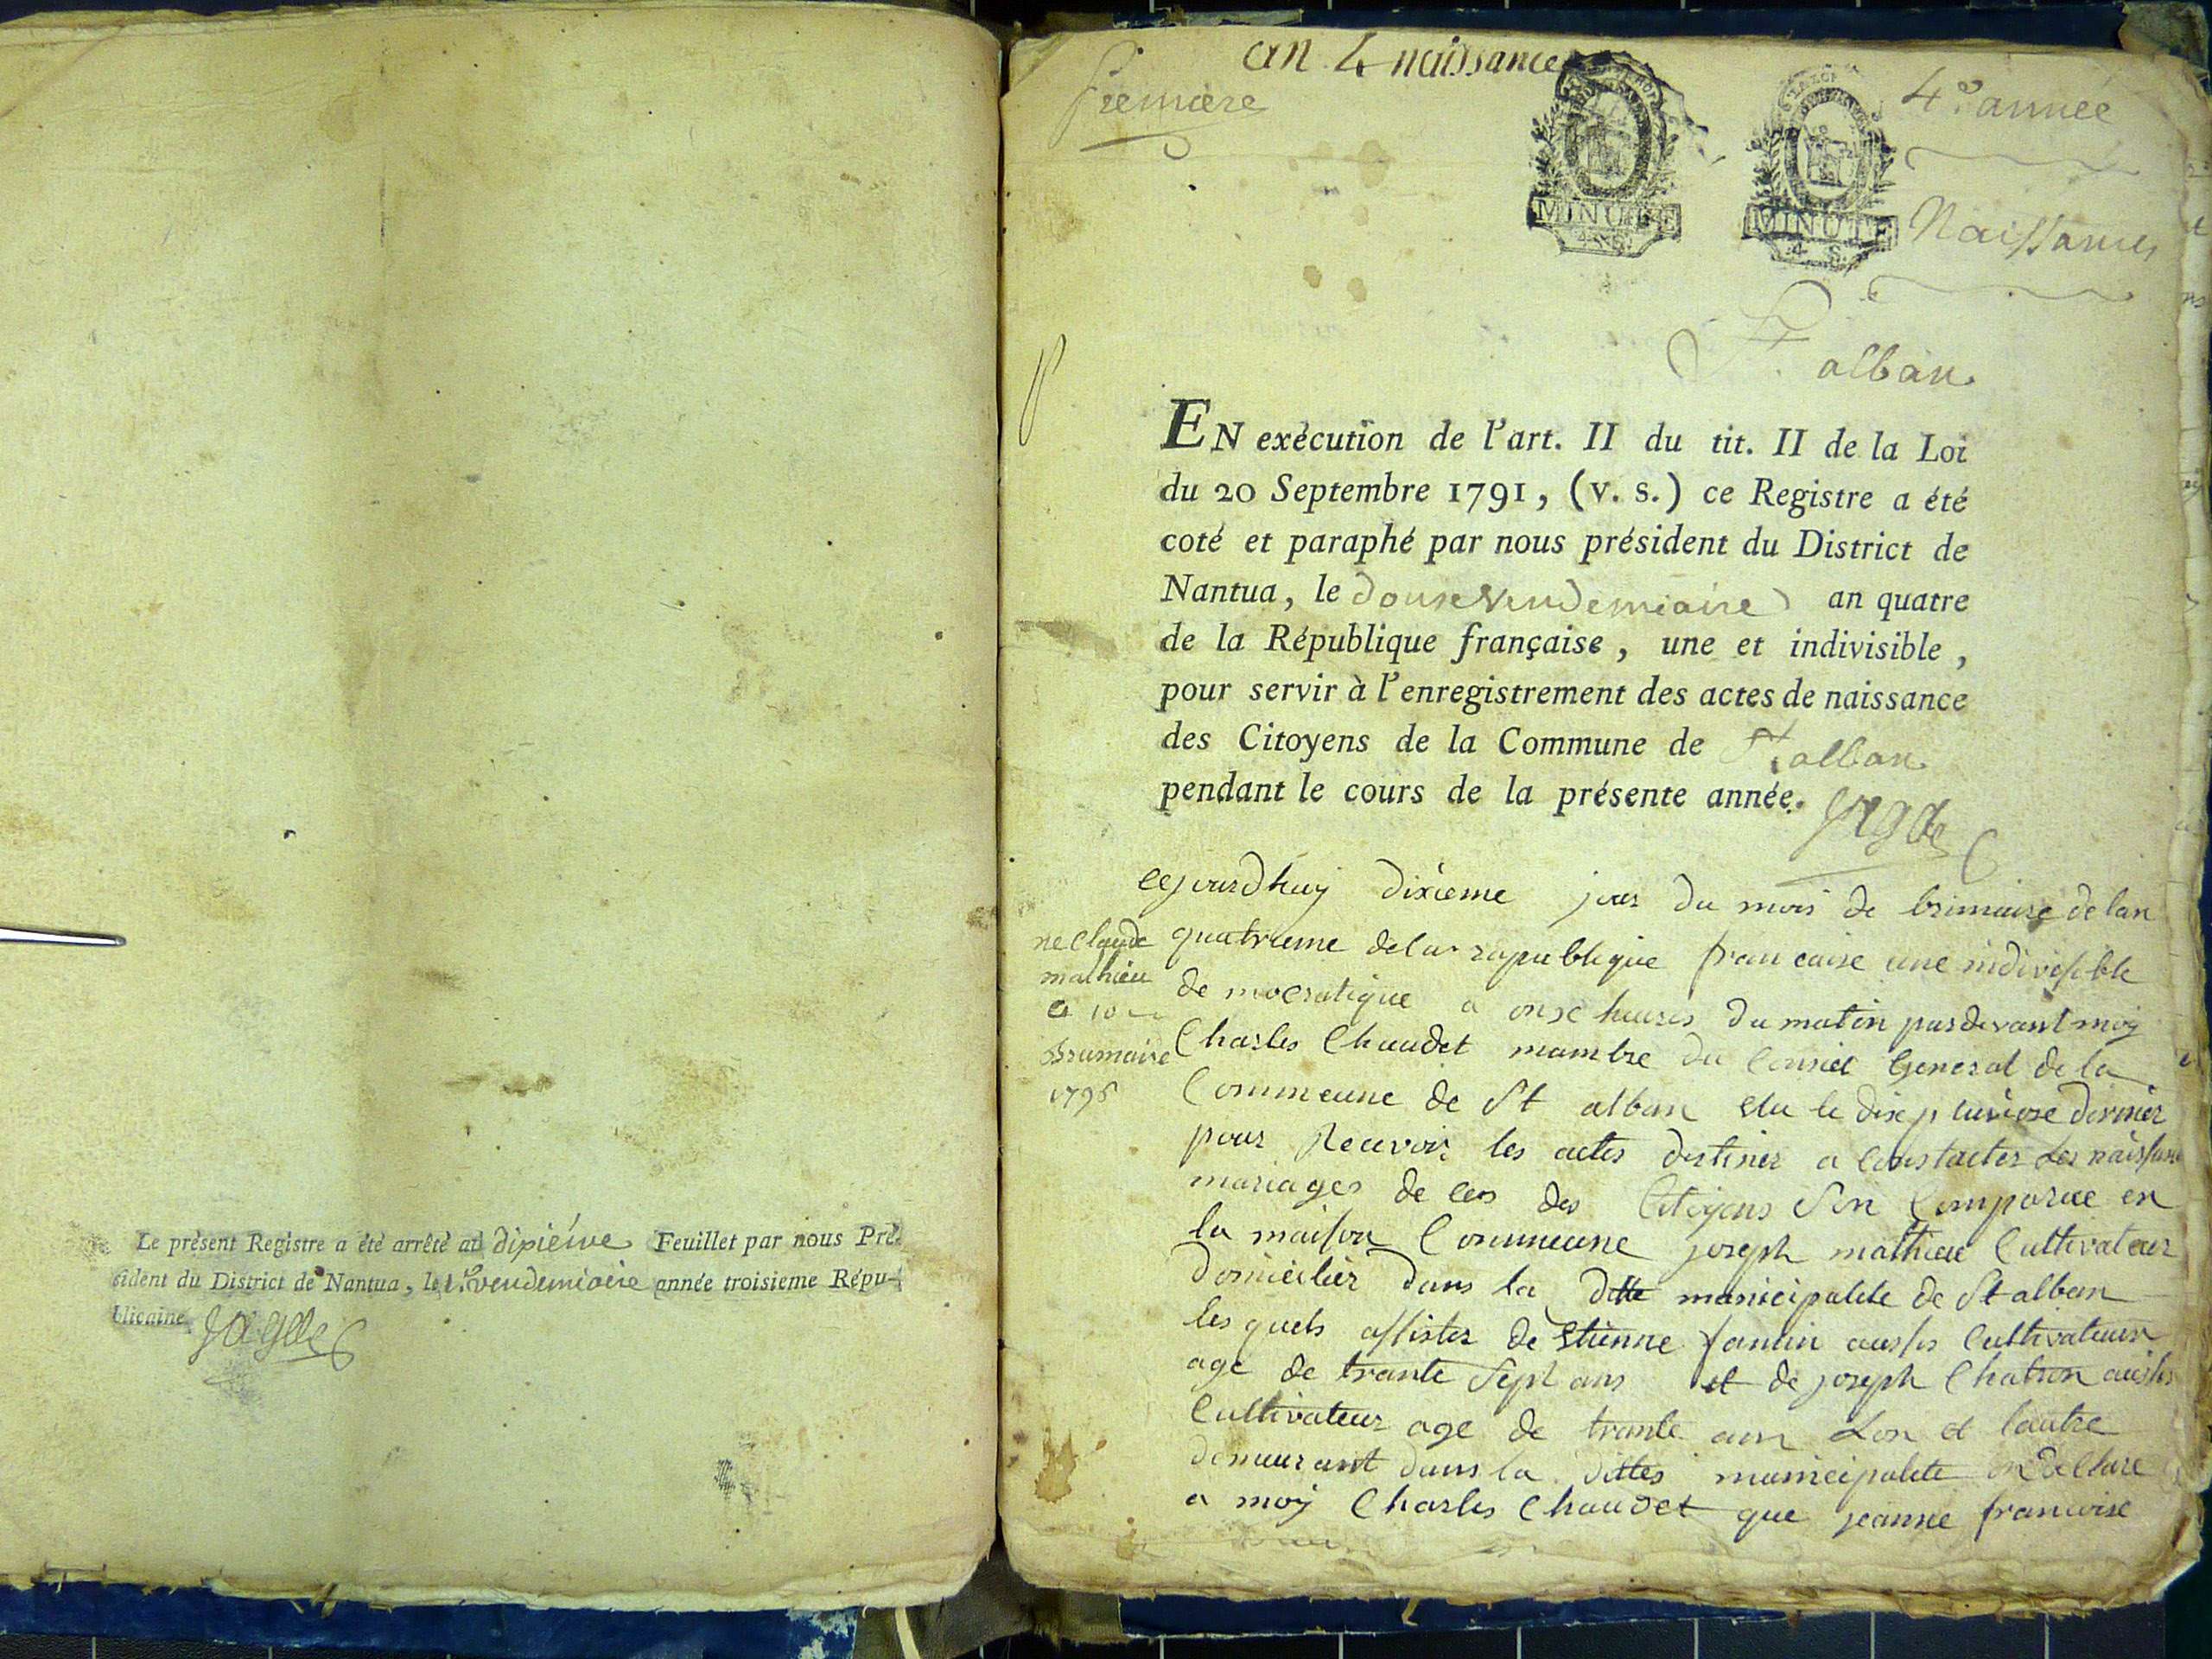 Le présent Registre a été arrêté au dixiéme Feuillet par nous Pré-
sident du District de Nantua, le 1.er vendemiaire année troisieme Répu-
blicaine.
an 4 naissance
Premiere
4e année
Naissances
MINUTE
4 S.
MINUTE
4 S.
St alban
EN exécution de l'art. II du tit. II de la Loi
du 20 Septembre 1791, (v. s.) ce Registre a été
coté et paraphé par nous président du District de
Nantua, le douse vendemiaire an quatre
de la République française, une et indivisible,
pour servir à l'enregistrement des actes de naissance
des Citoyens de la Commune de St alban
pendant le cours de la présente année.
cejourdhuy dixieme jour du mois de brimaire de lan
quatrieme de la rapublique francaise une indivisible
de mocratique a onse heures du matin pardevant moy
Charles Chaudet mambre du Consiel General de la
Commeune de St alban elu le dix pluviose dernier
pour Recevoir les actes destiner a Constacter Les naissance
mariages de ces des Citoyens Sen Comparue en
la maison Commeune joseph mathieu Cultivateur
domicilier dans la ditte municipalite de St alban
les quels assister de Etienne fantin aussis Cultivateur
age de trante Sept ans et de joseph Chatron aussis
Cultivateur age de trante ans Lon et lautre
demeurant dans la dittes municipalite on declare
a moy Charles Chaudet que jeanne francoise
ne Claude
mathieu
le 10
Brumaire